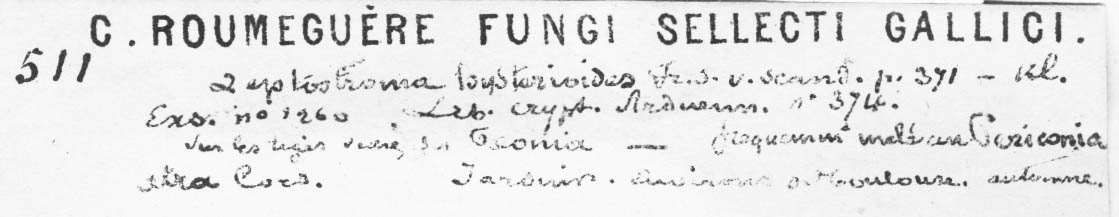 C. ROUMEGUÈRE FUNGI SELLECTI GALLICI.
511
Leptostroma hysterioides Fr. s. v. scand. p. 371 – Kl.
Exs. nº 1260 Lib. crypt. Arduenn. nº 374.
Sur les tiges de Pæonia — frequemmt mêlé au Periconia
atra Cord. Jardins. environs de Toulouse. automne.